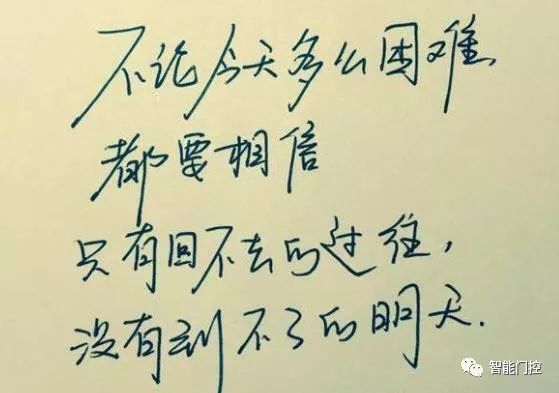 不论今天多么困难,
都要相信
只有回不去的过往,
没有到不了的明天.
智能门控